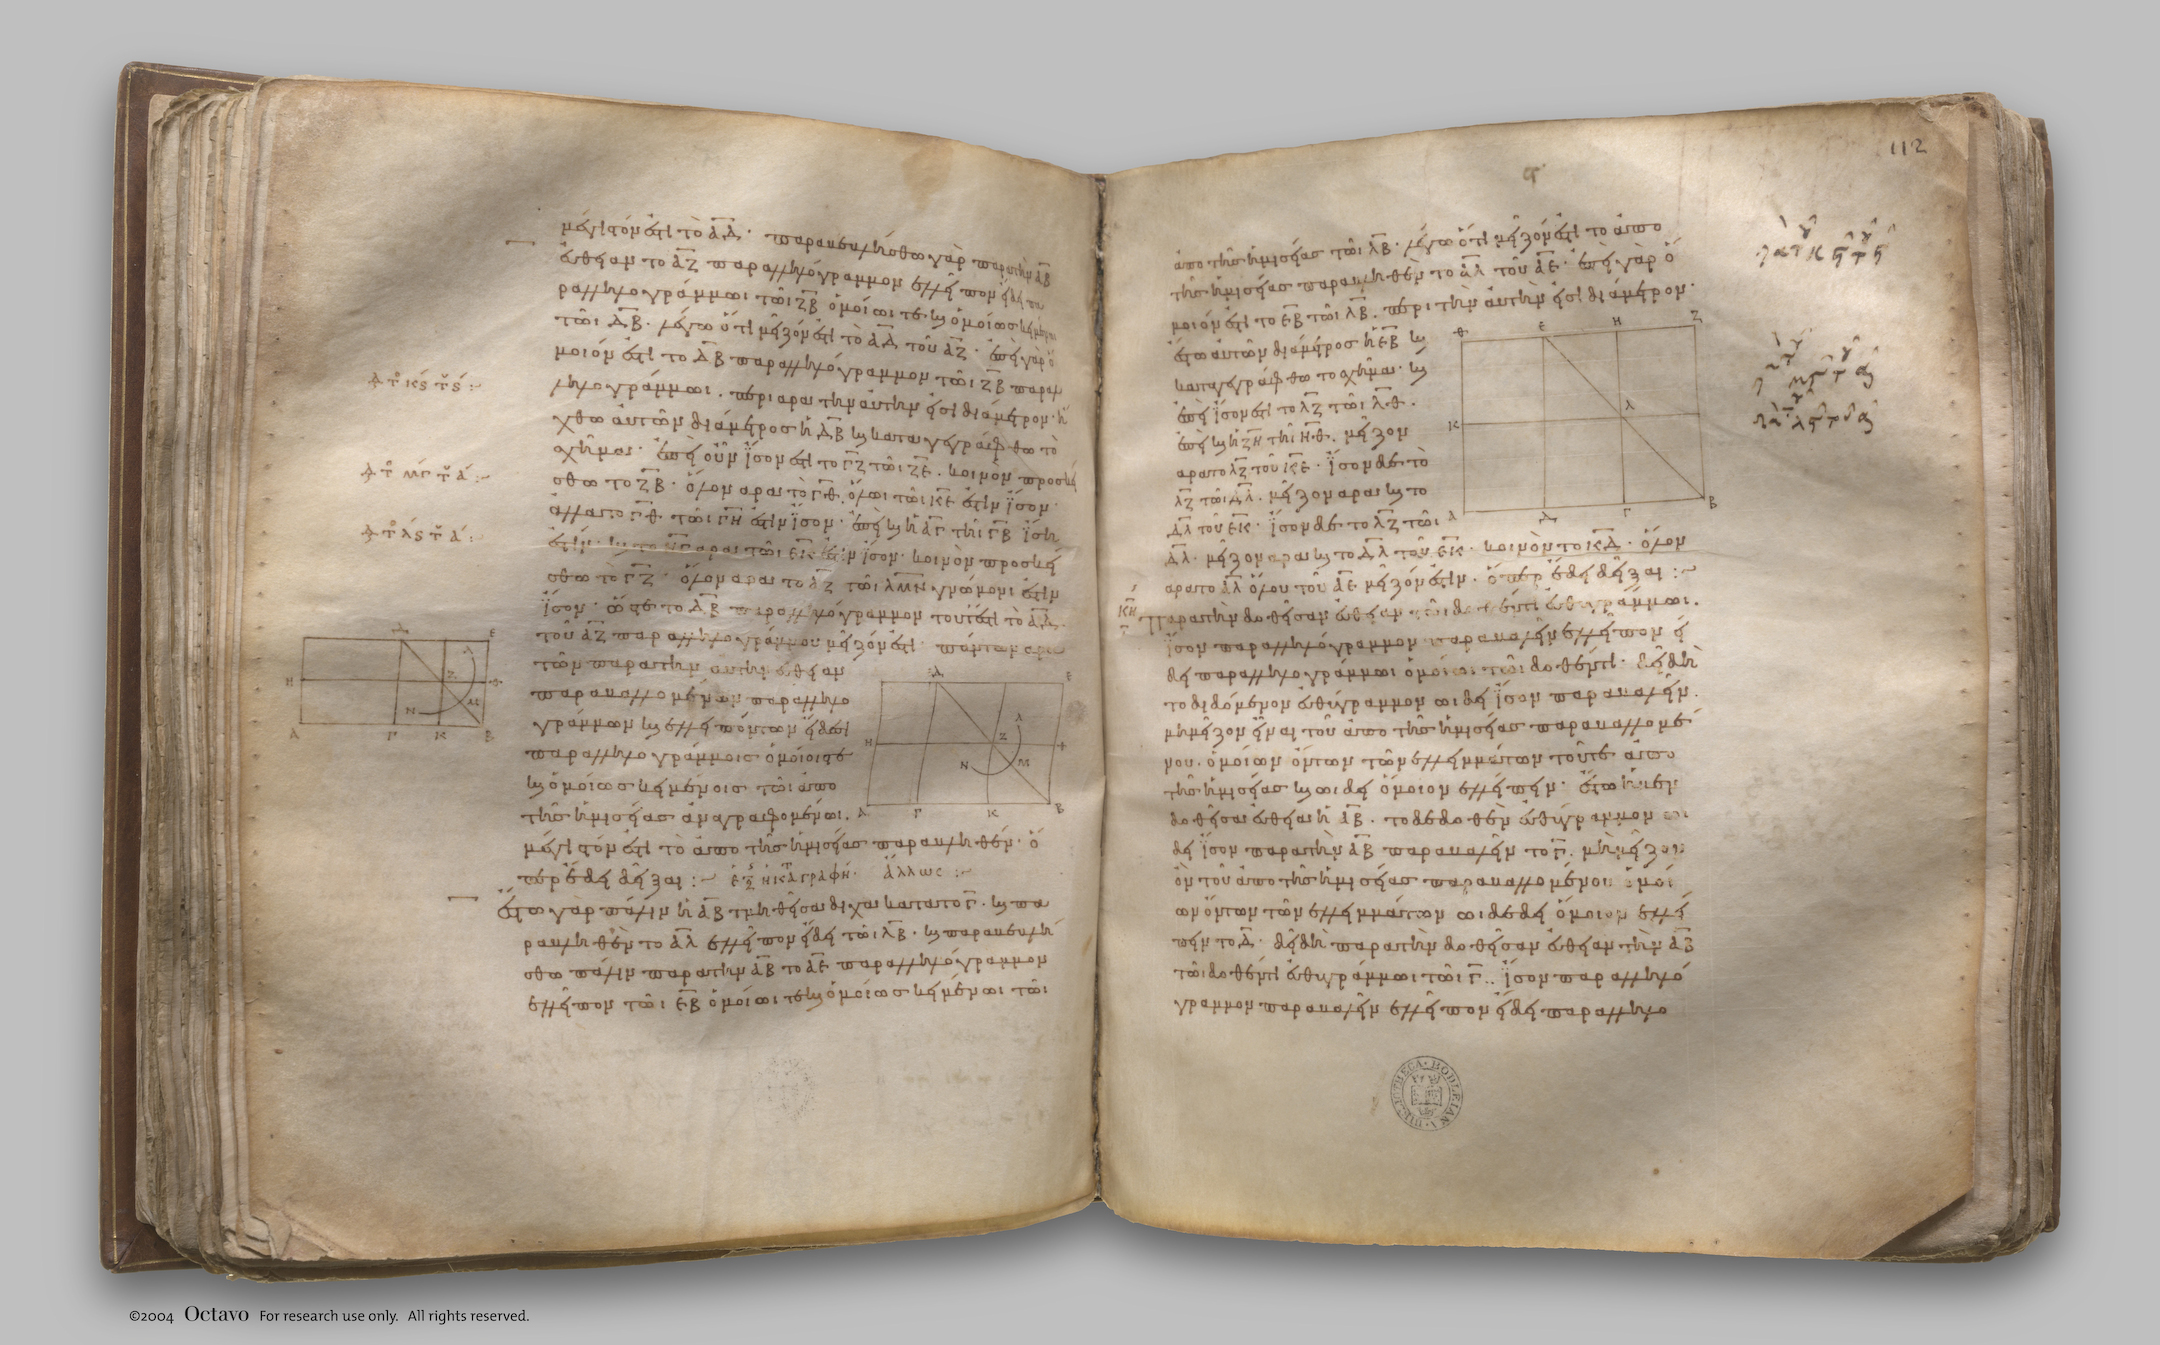 μέγιστόν ἐστι τὸ ΑΔ · παραβεβλήσθω γὰρ παρὰ τὴν ΑΒ
εὐθεῖαν τὸ ΑΖ παραλληλόγραμμον ἐλλεῖπον εἴδει πα
ραλληλογράμμωι τῶι ΖΒ ὁμοίωι τε καὶ ὁμοίως κειμένωι
τῶι ΔΒ · λέγω ὅτι μεῖζόν ἐστι τὸ ΑΔ τοῦ ΑΖ · ἐπεὶ γὰρ ὅ
μοιόν ἐστι τὸ ΔΒ παραλληλόγραμμον τῶι ΖΒ παραλ
ληλογράμμωι · περὶ ἄρα τὴν αὐτήν εἰσι διάμετρον · ἤ
χθω αὐτῶν διάμετρος ἡ ΔΒ καὶ καταγεγράφθω τὸ
σχῆμα · ἐπεὶ οὖν ἴσον ἐστὶ τὸ ΓΖ τῶι ΖΕ · κοινὸν προσκεί
σθω τὸ ΖΒ · ὅλον ἄρα τὸ ΓΘ ὅλωι τῶι ΚΕ ἐστὶν ἴσον ·
ἀλλὰ τὸ ΓΘ τῶι ΓΗ ἐστὶν ἴσον · ἐπεὶ καὶ ἡ ΑΓ τῆι ΓΒ ἴση
ἐστίν · καὶ τὸ ΗΓ ἄρα τῶι ΕΚ ἐστὶν ἴσον · κοινὸν προσκεί
σθω τὸ ΓΖ · ὅλον ἄρα τὸ ΑΖ τῶι ΛΜΝ γνώμονι ἐστὶν
ἴσον · ὥστε τὸ ΔΒ παραλληλόγραμμον τουτέστι τὸ ΑΔ
τοῦ ΑΖ παραλληλογράμμου μεῖζόν ἐστι · πάντων ἄρα
τῶν παρὰ τὴν αὐτὴν εὐθεῖαν
παραβαλλομένων παραλληλο
γράμμων καὶ ἐλλειπόντων εἴδεσι
παραλληλογράμμοις ὁμοίοις τε
καὶ ὁμοίως κειμένοις τῶι ἀπὸ
τῆς ἡμισείας ἀναγραφομένωι ·
μέγιστόν ἐστι τὸ ἀπὸ τῆς ἡμισείας παραβληθέν · ὅ
περ ἔδει δεῖξαι :~ ἄλλως :~
ἔστω γὰρ πάλιν ἡ ΑΒ τμηθεῖσα δίχα κατὰ τὸ Γ · καὶ πα
ραβληθὲν τὸ ΑΛ ἐλλεῖπον εἴδει τῶι ΛΒ · καὶ παραβεβλή
σθω πάλιν παρὰ τὴν ΑΒ τὸ ΑΕ παραλληλόγραμμον
ἐλλεῖπον τῶι ΕΒ ὁμοίωι τε καὶ ὁμοίως κειμένωι τῶι
Δ Ε
Η Ζ Θ
Ν Μ
Α Γ Κ Β
Δ Ε
Λ
Η Ζ Θ
Ν Μ
Α Γ Κ Β
112
ἀπὸ τῆς ἡμισείας τῶι ΛΒ · λέγω ὅτι μεῖζόν ἐστι τὸ ἀπὸ
τῆς ἡμισείας παραβληθὲν τὸ ΑΛ τοῦ ΑΕ · ἐπεὶ γὰρ ὅ
μοιόν ἐστι τὸ ΕΒ τῶι ΛΒ · περὶ τὴν αὐτήν εἰσι διάμετρον ·
ἔστω αὐτῶν διάμετρος ἡ ΕΒ καὶ
καταγεγράφθω τὸ σχῆμα · καὶ
ἐπεὶ ἴσον ἐστὶ τὸ ΛΖ τῶι ΛΘ ·
ἐπεὶ καὶ ἡ ΖΗ τῆι ΗΘ · μεῖζον
ἄρα τὸ ΛΖ τοῦ ΚΕ · ἴσον δὲ τὸ
ΛΖ τῶι ΔΛ · μεῖζον ἄρα καὶ τὸ
ΔΛ τοῦ ΕΚ · ἴσον δὲ τὸ ΛΖ τῶι
ΔΛ · μεῖζον ἄρα καὶ τὸ ΔΛ τοῦ ΕΚ · κοινὸν τὸ ΚΔ · ὅλον
ἄρα τὸ ΑΛ ὅλου τοῦ ΑΕ μεῖζόν ἐστιν · ὅπερ ἔδει δεῖξαι :~
ΚΗ παρὰ τὴν δοθεῖσαν εὐθεῖαν τῶι δοθέντι εὐθυγράμμωι ·
ἴσον παραλληλόγραμμον παραβαλεῖν ἐλλεῖπον εἴ
δει παραλληλογράμμωι ὁμοίωι τῶι δοθέντι · δεῖ δὴ
τὸ διδόμενον εὐθύγραμμον ὧι δεῖ ἴσον παραβαλεῖν ·
μὴ μεῖζον εἶναι τοῦ ἀπὸ τῆς ἡμισείας παραβαλλομέ
νου · ὁμοίων ὄντων τῶν ἐλλειμμάτων τοῦ τε ἀπὸ
τῆς ἡμισείας καὶ ὧι δεῖ ὅμοιον ἐλλείπειν · ἔστω ἡ μὲν
δοθεῖσα εὐθεῖα ἡ ΑΒ · τὸ δὲ δοθὲν εὐθύγραμμον ὧι
δεῖ ἴσον παρὰ τὴν ΑΒ παραβαλεῖν τὸ Γ · μὴ μεῖζον
ὂν τοῦ ἀπὸ τῆς ἡμισείας παραβαλλομένου ὁμοί
ων ὄντων τῶν ἐλλειμμάτων ὧι δὲ δεῖ ὅμοιον ἐλλεί
πειν τὸ Δ · δεῖ δὴ παρὰ τὴν δοθεῖσαν εὐθεῖαν τὴν ΑΒ
τῶι δοθέντι εὐθυγράμμωι τῶι Γ · ἴσον παραλληλό
γραμμον παραβαλεῖν ἐλλεῖπον εἴδει παραλληλο
Θ Ε Η Ζ
Κ Λ
Α Δ Γ Β
BIBLIOTHECA · BODLEIANA
©2004 Octavo For research use only. All rights reserved.